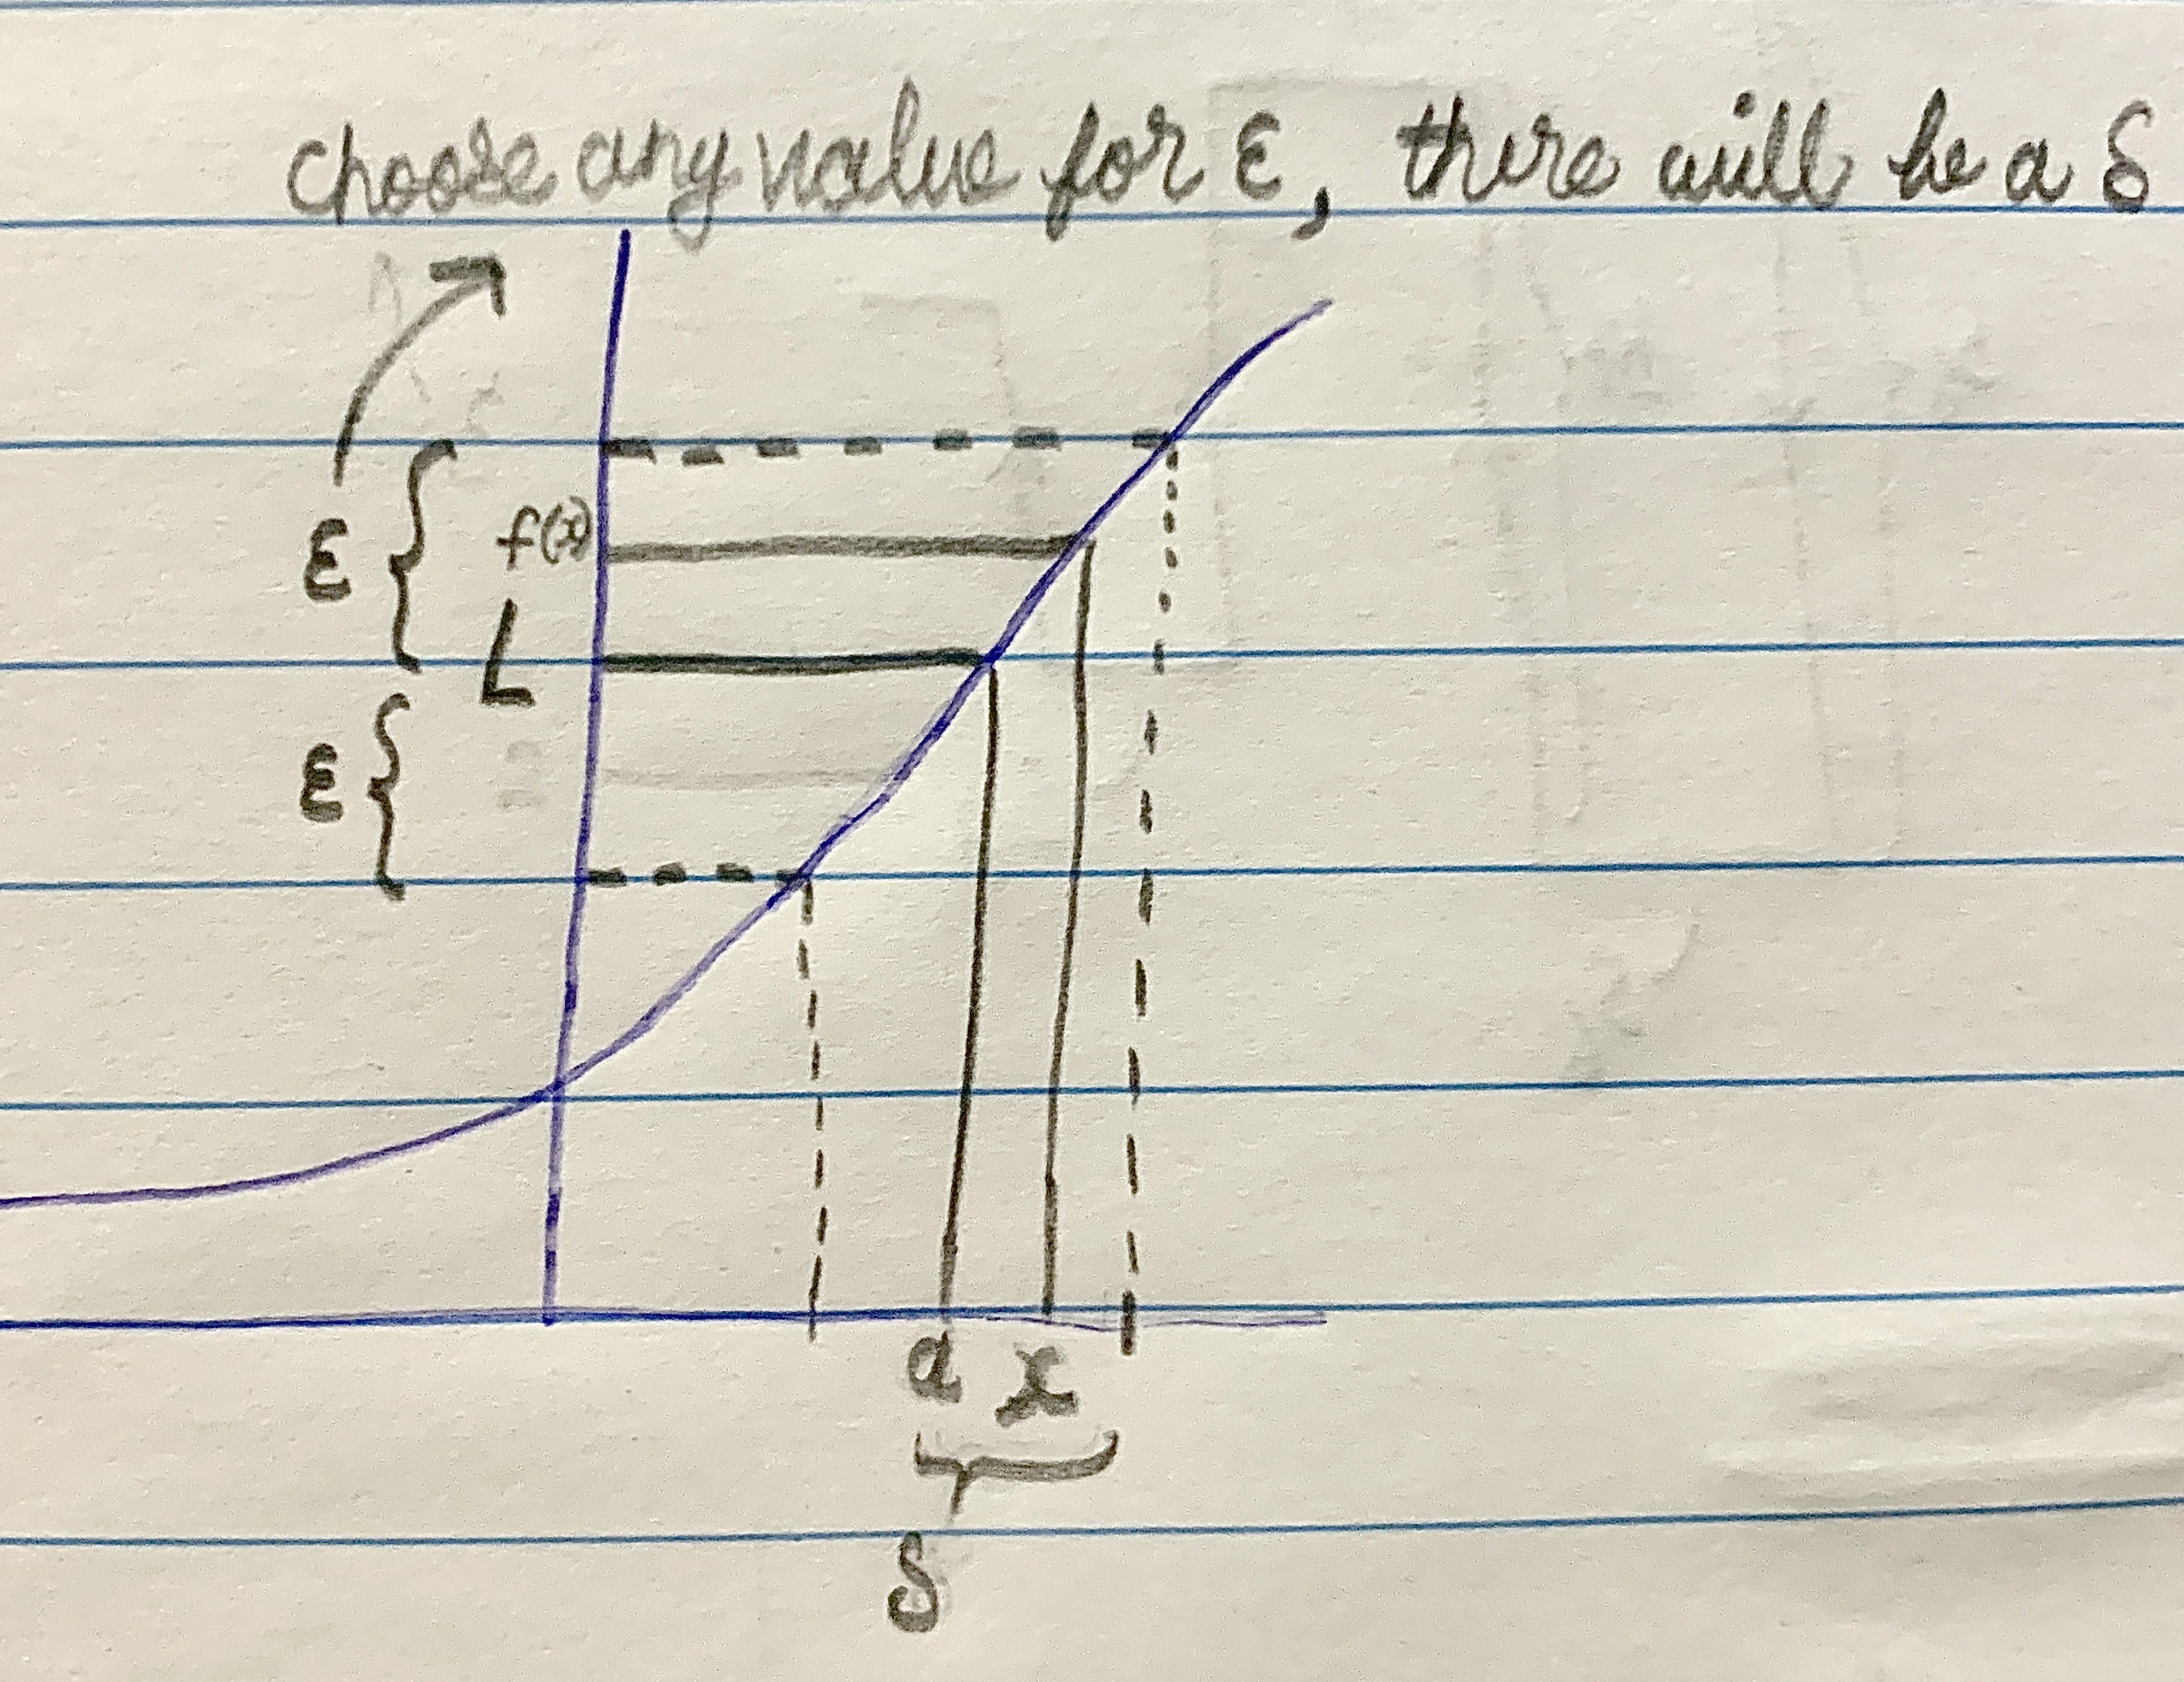 choose any value for ε, there will be a δ
f(x)
ε
L
ε
a x
δ